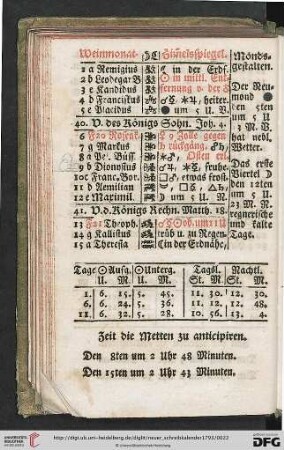 Weinmonat. Himelsspiegel. Monds-
gestalten.
1 a Remigius in der Erdf.
2 b Leodegar B in mitl. Ent-
3 c Kandidus fernung v. der
4 d Franciskus heiter.
5 e Placidus um 5 U. N.
Der Neu-
mond
den 5ten
um 5 U
3 M. N.
hat nebl.
Wetter.
40. V. des Königs Sohn. Joh. 4.
6 F20 Rosenk. 9 Zolle gegen
7 g Markus rückgäng.
8 a Pe. Büss. Osten erl.
9 b Dionysius frühe.
10 c Franc. Bor. etwas feucht
11 d Aemilian
12 e Maximil. um 5 U. N.
Das erste
Viertel
den 12ten
um 5 U.
23 M. N.
regnerische
und kalte
Tage.
41. V. d. Königs Rechn. Matth. 18.
13 F21 Theoph. um 11 U
14 g Kallistus trüb u. zu Regen
15 a Theresia in der Erdnähe,
Tage Aufg. Unterg. Tagsl. Nachtl.
U. M. U. M. St. M. St. M.
1. 6. 15. 5. 45. 11. 30. 12. 30.
6. 6. 24. 5. 36. 11. 12. 12. 48.
11. 6. 32. 5. 28. 10. 56. 13. 4.
Zeit die Metten zu anticipiren.
Den 8ten um 2 Uhr 48 Minuten.
Den 15ten um 2 Uhr 43 Minuten.
http://digi.ub.uni-heidelberg.de/diglit/neuer_schreibkalender1793/0022
© Universitätsbibliothek Heidelberg
DFG